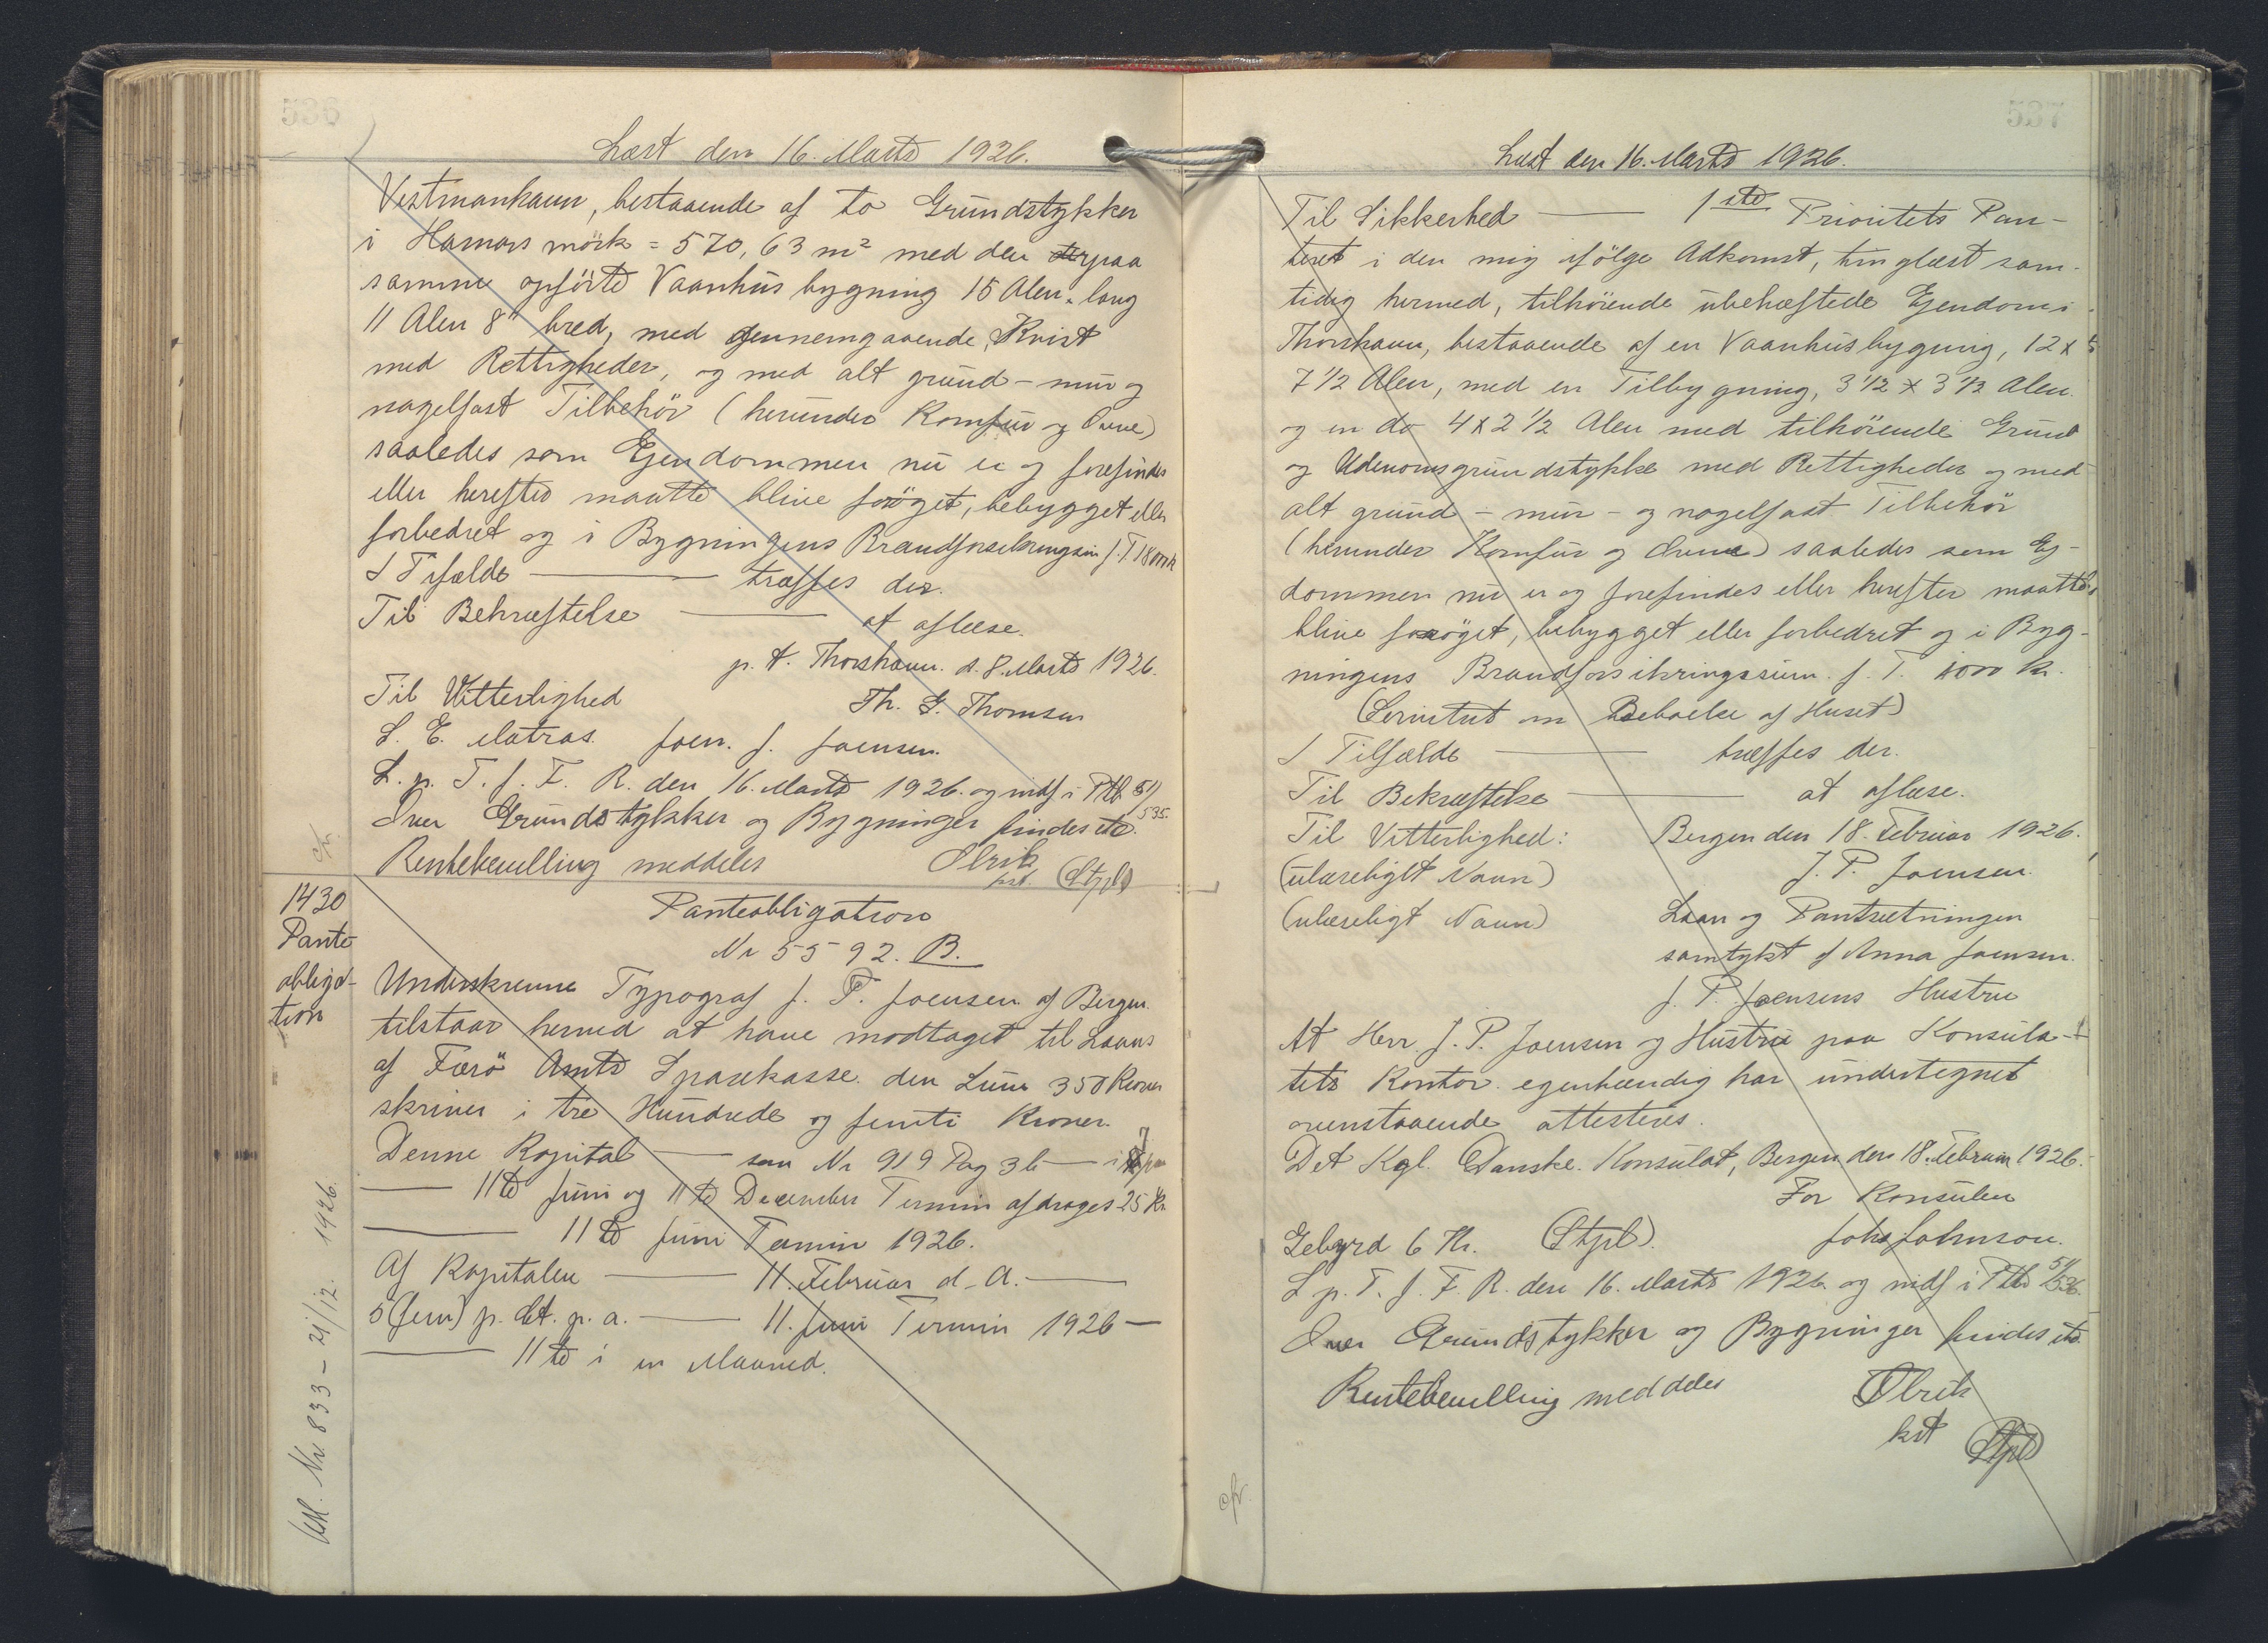 Læst den 16. Marts 1926.
Vestmanhavn, bestaaende af to Grundstykker
i Hamars mörk = 570,63 m² med den derpaa
samme opförte Vaanhusbygning 15 Alen lang
11 Alen 8" bred, med gennemgaaende Kvist
med Rettigheder, og med alt grund- mur og
nagelfast Tilbehör (herunder Komfur og Ovne)
saaledes som Ejendommen nu er og forefindes
eller herefter maatte blive forøget, bebygget eller
forbedret og i Bygningens Brandforsikringssum f. T. 1800 Kr
I Tifælde — træffes der.
Til Bekræftelse — at aflæse.
p. t. Thorshavn. d. 8. Marts 1926.
Til Vitterlighed Th. S. Thomsen
S. E. Matras. Joen. J. Joensen.
L. p. T. f. F. R. den 16. Marts 1926. og indf i Ptb 51/535.
Over Grundstykker og Bygninger findes etc.
Rentebevilling meddeles Olrik
kst. (Stpl)
cfr.
1430
Pante
obliga-
tion
Panteobligation
Nr 5592. B.
Underskrevne Typograf J. P. Joensen af Bergen
tilstaar herved at have modtaget til Laans
af Færö Amts Sparekasse den Sum 350 Kroner
skriver i tre Hundrede og femti Kroner.
Denne Kapital — som Nr 919 Pag 36 — i
— 11te Juni og 11te December Termin afdrages 25 Kr
— 11te Juni Termin 1926.
Af Kapitalen — 11. Februar d. A. —
5 (fem) p. Ct. p. a. — 11. Juni Termin 1926 —
— 11te i en Maaned.
Udl. Nr 833 – 21/12. 1926.
Læst den 16. Marts 1926.
Til Sikkerhed — 1ste Prioritets Pan-
teret i den mig ifölge Adkomst, tinglæst sam-
tidig hermed, tilhörende ubehæftede Ejendom i
Thorshavn, bestaaende af en Vaanhusbygning, 12 x
7 1/2 Alen, med en Tilbygning, 3 1/2 x 3 1/2 Alen
og en do 4 x 2 1/2 Alen med tilhörende Grund
og Udenomsgrundstykke med Rettigheder og med
alt grund - mur - og nagelfast Tilbehör
(herunder Komfur og Ovne) saaledes som Ej-
dommen nu er og forefindes eller herefter maatte
blive forøget, bebygget eller forbedret og i Byg-
ningens Brandforsikringssum. f. T. 1000 Kr.
(Servitut om Beboelse af Huset)
I Tilfælde — træffes der.
Til Bekræftelse — at aflæse.
Til Vitterlighed: Bergen den 18. Februar 1926.
(ulæseligt Navn) J. P. Joensen.
(ulæseligt Navn) Laan og Pantsætningen
samtykt af Anna Joensen.
J. P. Joensens Hustru
At Herr J. P. Joensen og Hustru paa Konsula-
tets Kontor egenhændig har undertegnet
ovenstaaende attesteres.
Det Kgl. Danske Konsulat, Bergen den 18. Februar 1926.
For Konsulen
Gebyrd 6 Kr. (Stpl). Johs Johnson.
L p. T. f. F. R. den 16. Marts 1926 og indf i Ptb 51/536.
Over Grundstykker og Bygninger findes etc.
Rentebevilling meddeles Olrik
kst (Stpl)
cfr.